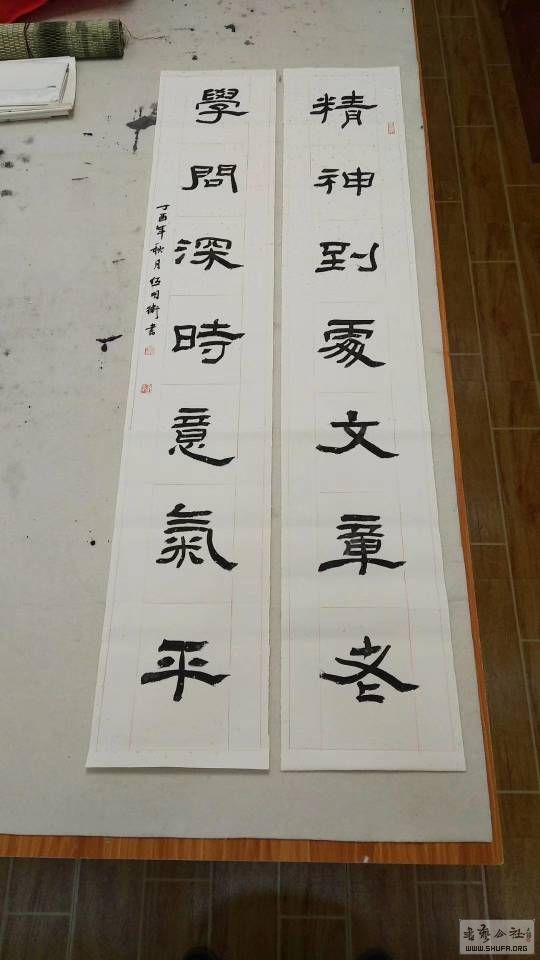 精神到處文章老
學問深時意氣平
丁酉年秋月伍明衛書
书艺公社
WWW.SHUFA.ORG